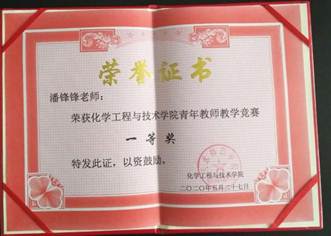 荣誉证书
潘锋锋老师：
荣获化学工程与技术学院青年教师教学竞赛
一等奖
特发此证，以资鼓励。
化学工程与技术学院
二〇二〇年五月二十七日